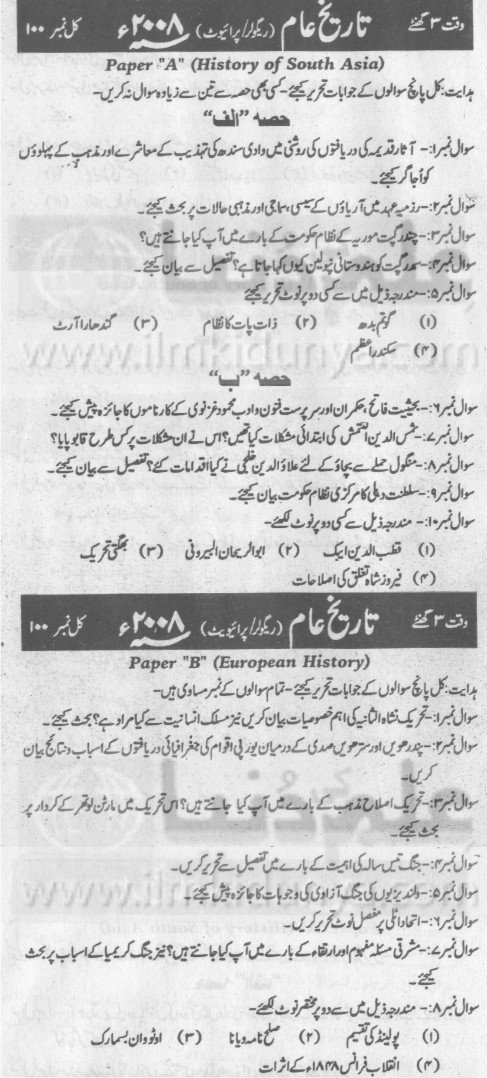 وقت ۳ گھنٹے تاریخ عام (ریگولر/پرائیوٹ) ۲۰۰۸ء کل نمبر ۱۰۰
Paper "A" (History of South Asia)
ہدایت: کل پانچ سوالوں کے جوابات تحریر کیجئے- کسی بھی حصہ سے تین سے زیادہ سوال نہ کریں-
حصہ "الف"
سوال نمبر۱:- آثار قدیمہ کی دریافتوں کی روشنی میں وادی سندھ کی تہذیب کے معاشرے اور مذہب کے پہلوؤں
کو اُجاگر کیجئے-
سوال نمبر۲:- رزمیہ عہد میں آریاؤں کے سیسی، سماجی اور مذہبی حالات پر بحث کیجئے-
سوال نمبر۳:- چندر گپت موریہ کے نظام حکومت کے بارے میں آپ کیا جانتے ہیں؟
سوال نمبر۴:- سمدر گپت کو ہندوستانی نپولین کیوں کہا جاتا ہے؟ تفصیل سے بیان کیجئے-
سوال نمبر۵:- مندرجہ ذیل میں سے کسی دو پر نوٹ تحریر کیجئے
(۱) گوتم بدھ (۲) ذات پات کا نظام (۳) گندھارا آرٹ
(۴) سکندر اعظم
www.ilmkidunya.com
حصہ "ب"
سوال نمبر۶:- بحیثیت فاتح، حکمران اور سرپرست فنون و ادب محمود غزنوی کے کارناموں کا جائزہ پیش کیجئے-
سوال نمبر۷:- شمس الدین التمش کی ابتدائی مشکلات کیا تھیں؟ اس نے ان مشکلات پر کس طرح قابو پایا؟
سوال نمبر۸:- منگول حملے سے بچاؤ کے لئے علاؤ الدین خلجی نے کیا اقدامات کئے؟ تفصیل سے بیان کیجئے-
سوال نمبر۹:- سلطنت دہلی کا مرکزی نظام حکومت بیان کیجئے-
سوال نمبر۱۰:- مندرجہ ذیل میں سے کسی دو پر نوٹ لکھئے-
(۱) قطب الدین ایبک (۲) ابوالریحان البیرونی (۳) بھگتی تحریک
(۴) فیروز شاہ تغلق کی اصلاحات
وقت ۳ گھنٹے تاریخ عام (ریگولر/پرائیوٹ) ۲۰۰۸ء کل نمبر ۱۰۰
Paper "B" (European History)
ہدایت: کل پانچ سوالوں کے جوابات تحریر کیجئے- تمام سوالوں کے نمبر مساوی ہیں-
سوال نمبر۱:- تحریک نشاۃ الثانیہ کی اہم خصوصیات بیان کریں نیز مسلک انسانیت سے کیا مراد ہے؟ بحث کیجئے-
سوال نمبر۲:- پندرھویں اور سترھویں صدی کے درمیان یورپی اقوام کی جغرافیائی دریافتوں کے اسباب و نتائج بیان
کریں-
سوال نمبر۳:- تحریک اصلاح مذہب کے بارے میں آپ کیا جانتے ہیں؟ اس تحریک میں مارٹن لوتھر کے کردار پر
بحث کیجئے-
علم کی دُنیا
سوال نمبر۴:- جنگ تیس سالہ کی اہمیت کے بارے میں تفصیل سے تحریر کریں-
www.ilmkidunya.com
سوال نمبر۵:- ولندیزیوں کی جنگ آزادی کی وجوہات کا جائزہ پیش کیجئے-
سوال نمبر۶:- اتحاد اٹلی پر مفصل نوٹ تحریر کریں-
سوال نمبر۷:- مشرقی مسئلہ مفہوم اور ارتقاء کے بارے میں آپ کیا جانتے ہیں؟ نیز جنگ کریمیا کے اسباب پر بحث
کیجئے-
سوال نمبر۸:- مندرجہ ذیل میں سے دو پر مختصر نوٹ لکھئے-
(۱) پولینڈ کی تقسیم (۲) صلح نامہ ویانا (۳) اوٹو وان بسمارک
(۴) انقلاب فرانس ۱۸۴۸ء کے اثرات